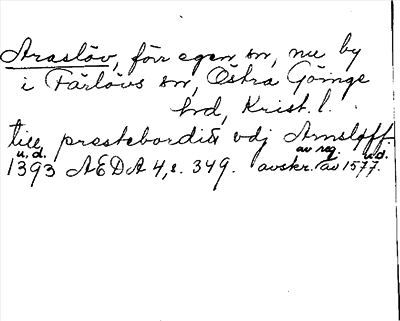 Araslöv, förr egen sn, nu by
i Färlövs sn, Östra Göinge
hd, Krist. l.
till prestebordit vdj Arnsløff.
u.d. av reg. u.d.
1393 AEDA 4, s. 349. avskr. av 1577.